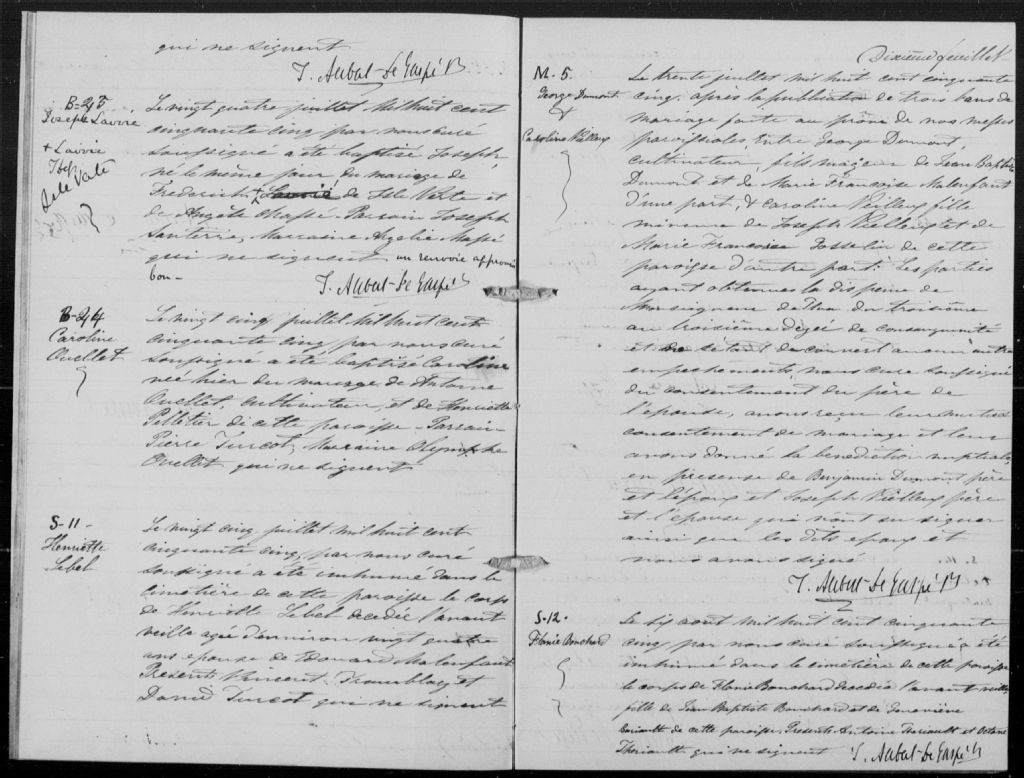 qui ne signent
T. Aubut-De Gaspé Ptr
B-25
Joseph Lavoie
+ Lavoie
Jos.
Isle Verte
Le vingt quatre juillet mil huit cent
cinquante cinq par nous curé
soussigné a été baptisé Joseph
né le même jour du mariage de
Frederick + Lavoie de Isle Verte et
de Angèle Massé. Parrain Joseph
Santerre, Marraine Angelie Massé
qui ne signent un renvoie approuvé
bon -
T. Aubut-De Gaspé Ptr
B-24
Caroline
Ouellet
Le vingt cinq juillet mil huit cent
cinquante cinq par nous curé
soussigné a été baptisé Caroline
née hier du mariage de Antoine
Ouellet, cultivateur, et de Henriette
Pelletier de cette paroisse - Parrain
Pierre Turcot, Marraine Olymphe
Ouellet qui ne signent.
S-11-
Henriette
Lebel
Le vingt cinq juillet mil huit cent
cinquante cinq, par nous curé
soussigné a été inhumé dans le
cimetière de cette paroisse le corps
de Henriette Lebel decedée l'avant
veille agée d'environ vingt quatre
ans epouse de Edouard Malenfant
Présents Vincent Tremblay et
David Turcot qui ne signent
Dixième feuillet
M-5.
George Dumont
&
Caroline Vieilleux
Le trente juillet mil huit cent cinquante
cinq, après la publication de trois bans de
mariage faite au prône de nos messes
paroissiales, entre George Dumont,
cultivateur, fils majeur de Jean Baptiste
Dumont et de Marie Françoise Malenfant
d'une part, & Caroline Vieilleux fille
mineure de Joseph Vieilleux et de
Marie Françoise Josselin de cette
paroisse d'autre part. Les parties
ayant obtenues la dispense de
Monseigneur de Tloa du troisième
au troisième degré de consanguinité
et ne s'étant decouvert aucun autre
empechements, nous curé soussigné
du consentement du père de
l'épouse, avons reçu leur mutuel
consentement de mariage et leur
avons donné la benediction nuptiale,
en presense de Benjamin Dumont père
et l'époux et Joseph Vieilleux père
et l'épouse qui n'ont su signer
ainsi que les dits epoux et
nous avons signé
T. Aubut-De Gaspé Ptr
S-12-
Flavie Bouchard
Le six aout mil huit cent cinquante
cinq par nous curé soussigné a été
inhumé dans le cimetière de cette paroisse
le corps de Flavie Bouchard decedée l'avant veille
fille de Jean Baptiste Bouchard et de Geneviève
de cette paroisse, Presents Antoine Theriault et Octave
Theriault qui ne signent T. Aubut-De Gaspé Ptr